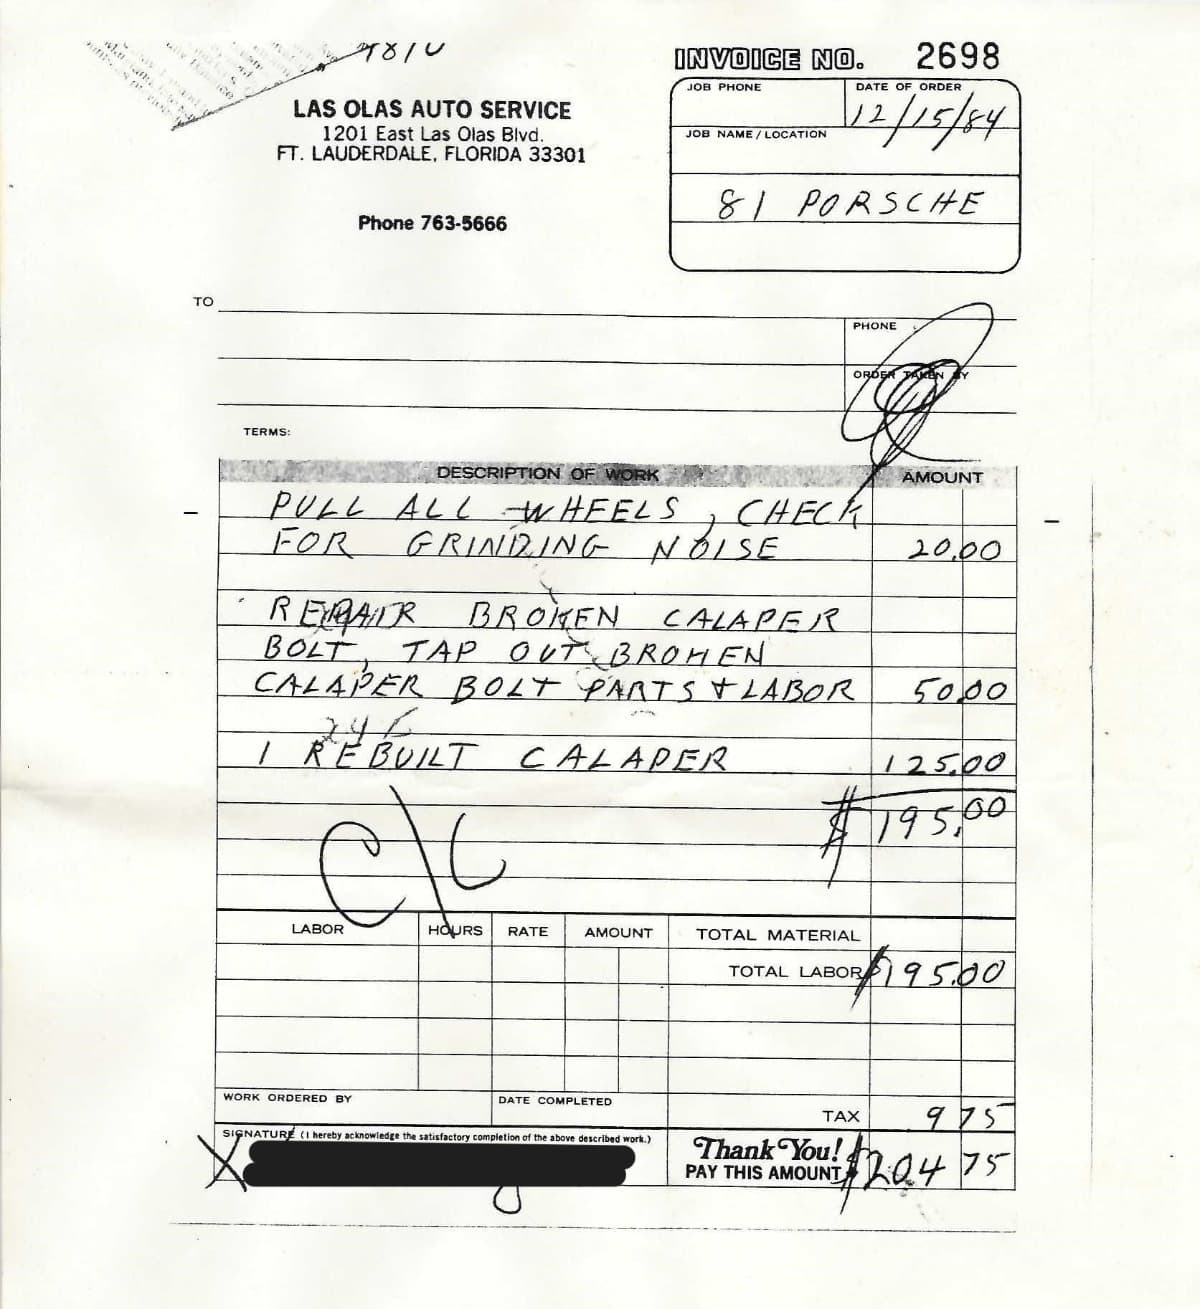 INVOICE NO. 2698
JOB PHONE
DATE OF ORDER
12/15/84
LAS OLAS AUTO SERVICE
1201 East Las Olas Blvd.
FT. LAUDERDALE, FLORIDA 33301
Phone 763-5666
JOB NAME / LOCATION
81 PORSCHE
TO
PHONE
ORDER TAKEN BY
TERMS:
DESCRIPTION OF WORK AMOUNT
PULL ALL WHEELS, CHECK
FOR GRINDING NOISE 20.00
REPAIR BROKEN CALAPER
BOLT, TAP OUT BROKEN
CALAPER BOLT PARTS + LABOR 50.00
1 REBUILT CALAPER 125.00
$195.00
C/C
LABOR HOURS RATE AMOUNT TOTAL MATERIAL
TOTAL LABOR $195.00
WORK ORDERED BY DATE COMPLETED
TAX 9 75
SIGNATURE (I hereby acknowledge the satisfactory completion of the above described work.)
X
Thank You!
PAY THIS AMOUNT $204 75